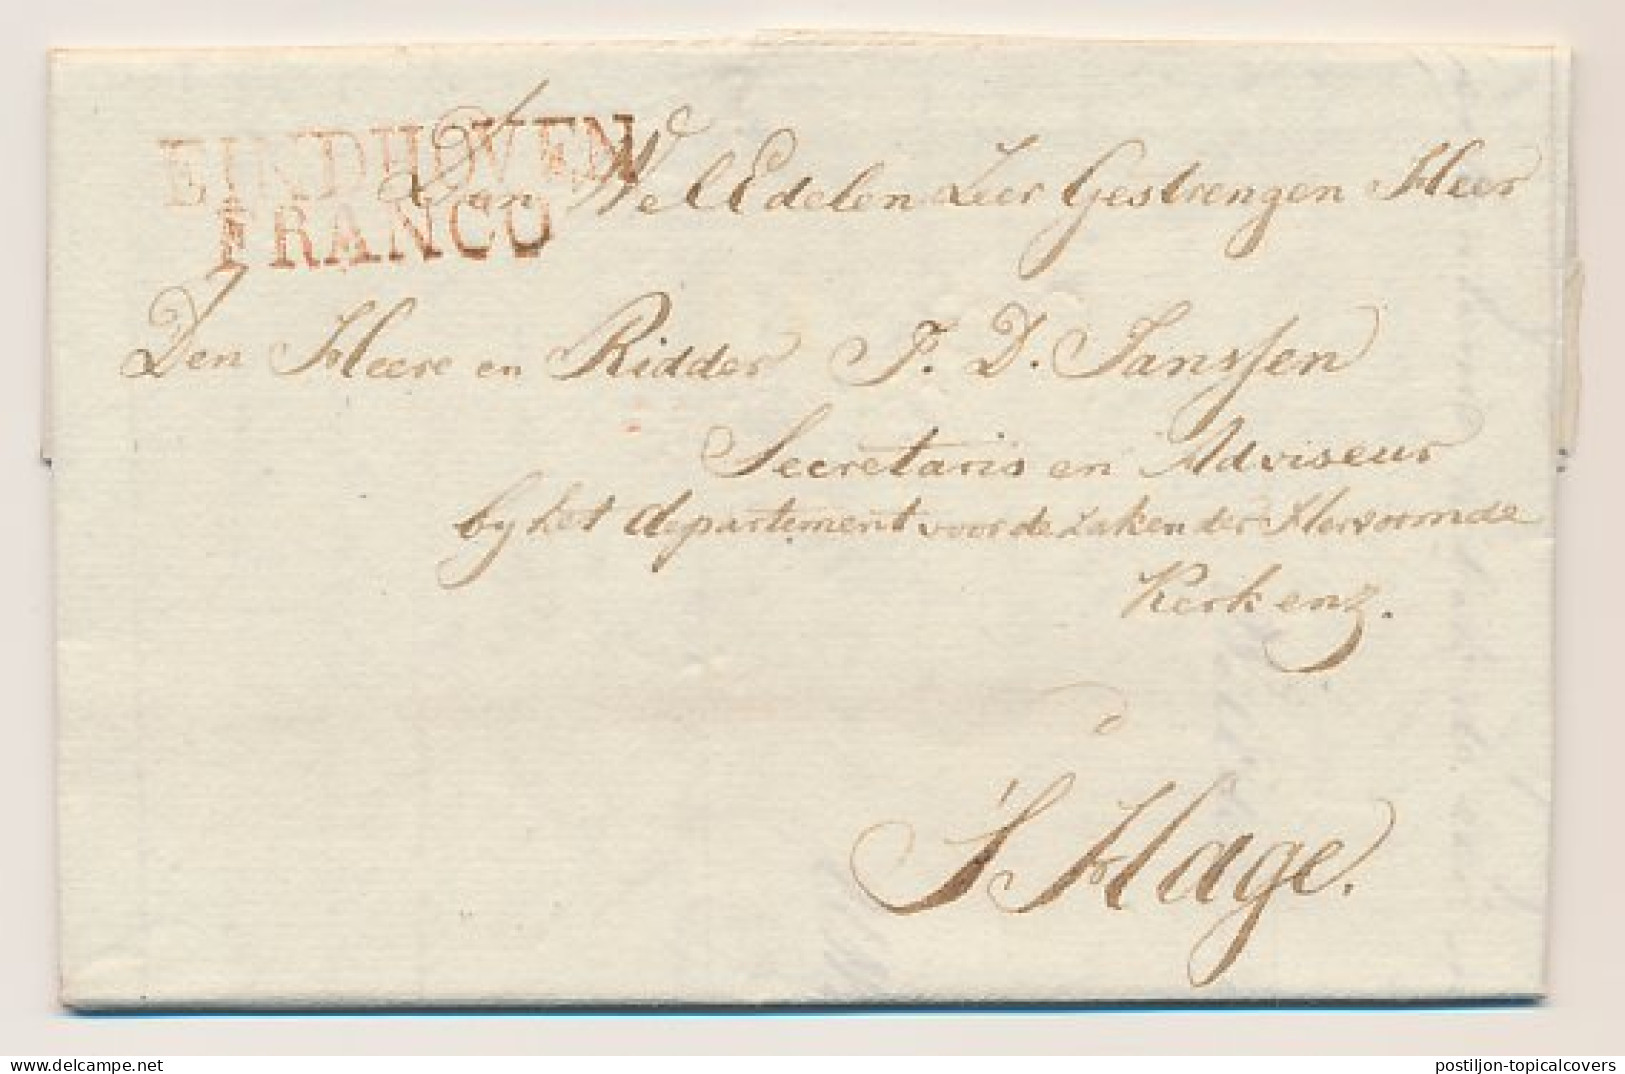 EINDHOVEN
FRANCO
Den Wel Edelen Zeer Gestrengen Heer
Den Heere en Ridder J. D. Janssen
Secretaris en Adviseur
by het departement voor de zaken der Hervormde
Kerk enz.
S' Hage.
postiljon-topicalcovers